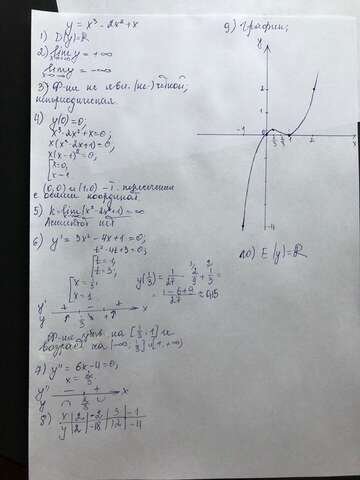 y = x³ - 2x² + x
1) D(y)=ℝ
2) lim y = +∞
x→+∞
lim y = -∞
x→-∞
3) Ф-ия не явл. (не-) чётной,
непериодическая.
4) y(0)=0;
x³-2x²+x=0;
x(x²-2x+1)=0;
x(x-1)²=0;
[x=0,
x=1
(0,0) и (1,0) - т. пересечения
с осями координат.
5) k=lim(x²-2x+1)=∞
Асимптот нет
6) y' = 3x²-4x+1=0;
t²-4t+3=0;
[t=1,
t=3;
[x=1/3,
x=1.
y(1/3) = 1/27 - 2/9 + 1/3 =
= (1-6+9)/27 ≈ 0,15
y' + - + x
y 1/3 1
Ф-ия убыв. на [1/3;1] и
возраст. на (-∞; 1/3] и [1;+∞)
7) y''=6x-4=0,
x=2/3
y'' - + x
y 2/3
8) x | 2 | -2 | 3 | -1
y | 2 | -18 | 12 | -4
9) График:
y
2
1
-1 0 1/3 2/3 1 2 x
-4
10) E(y)=ℝ